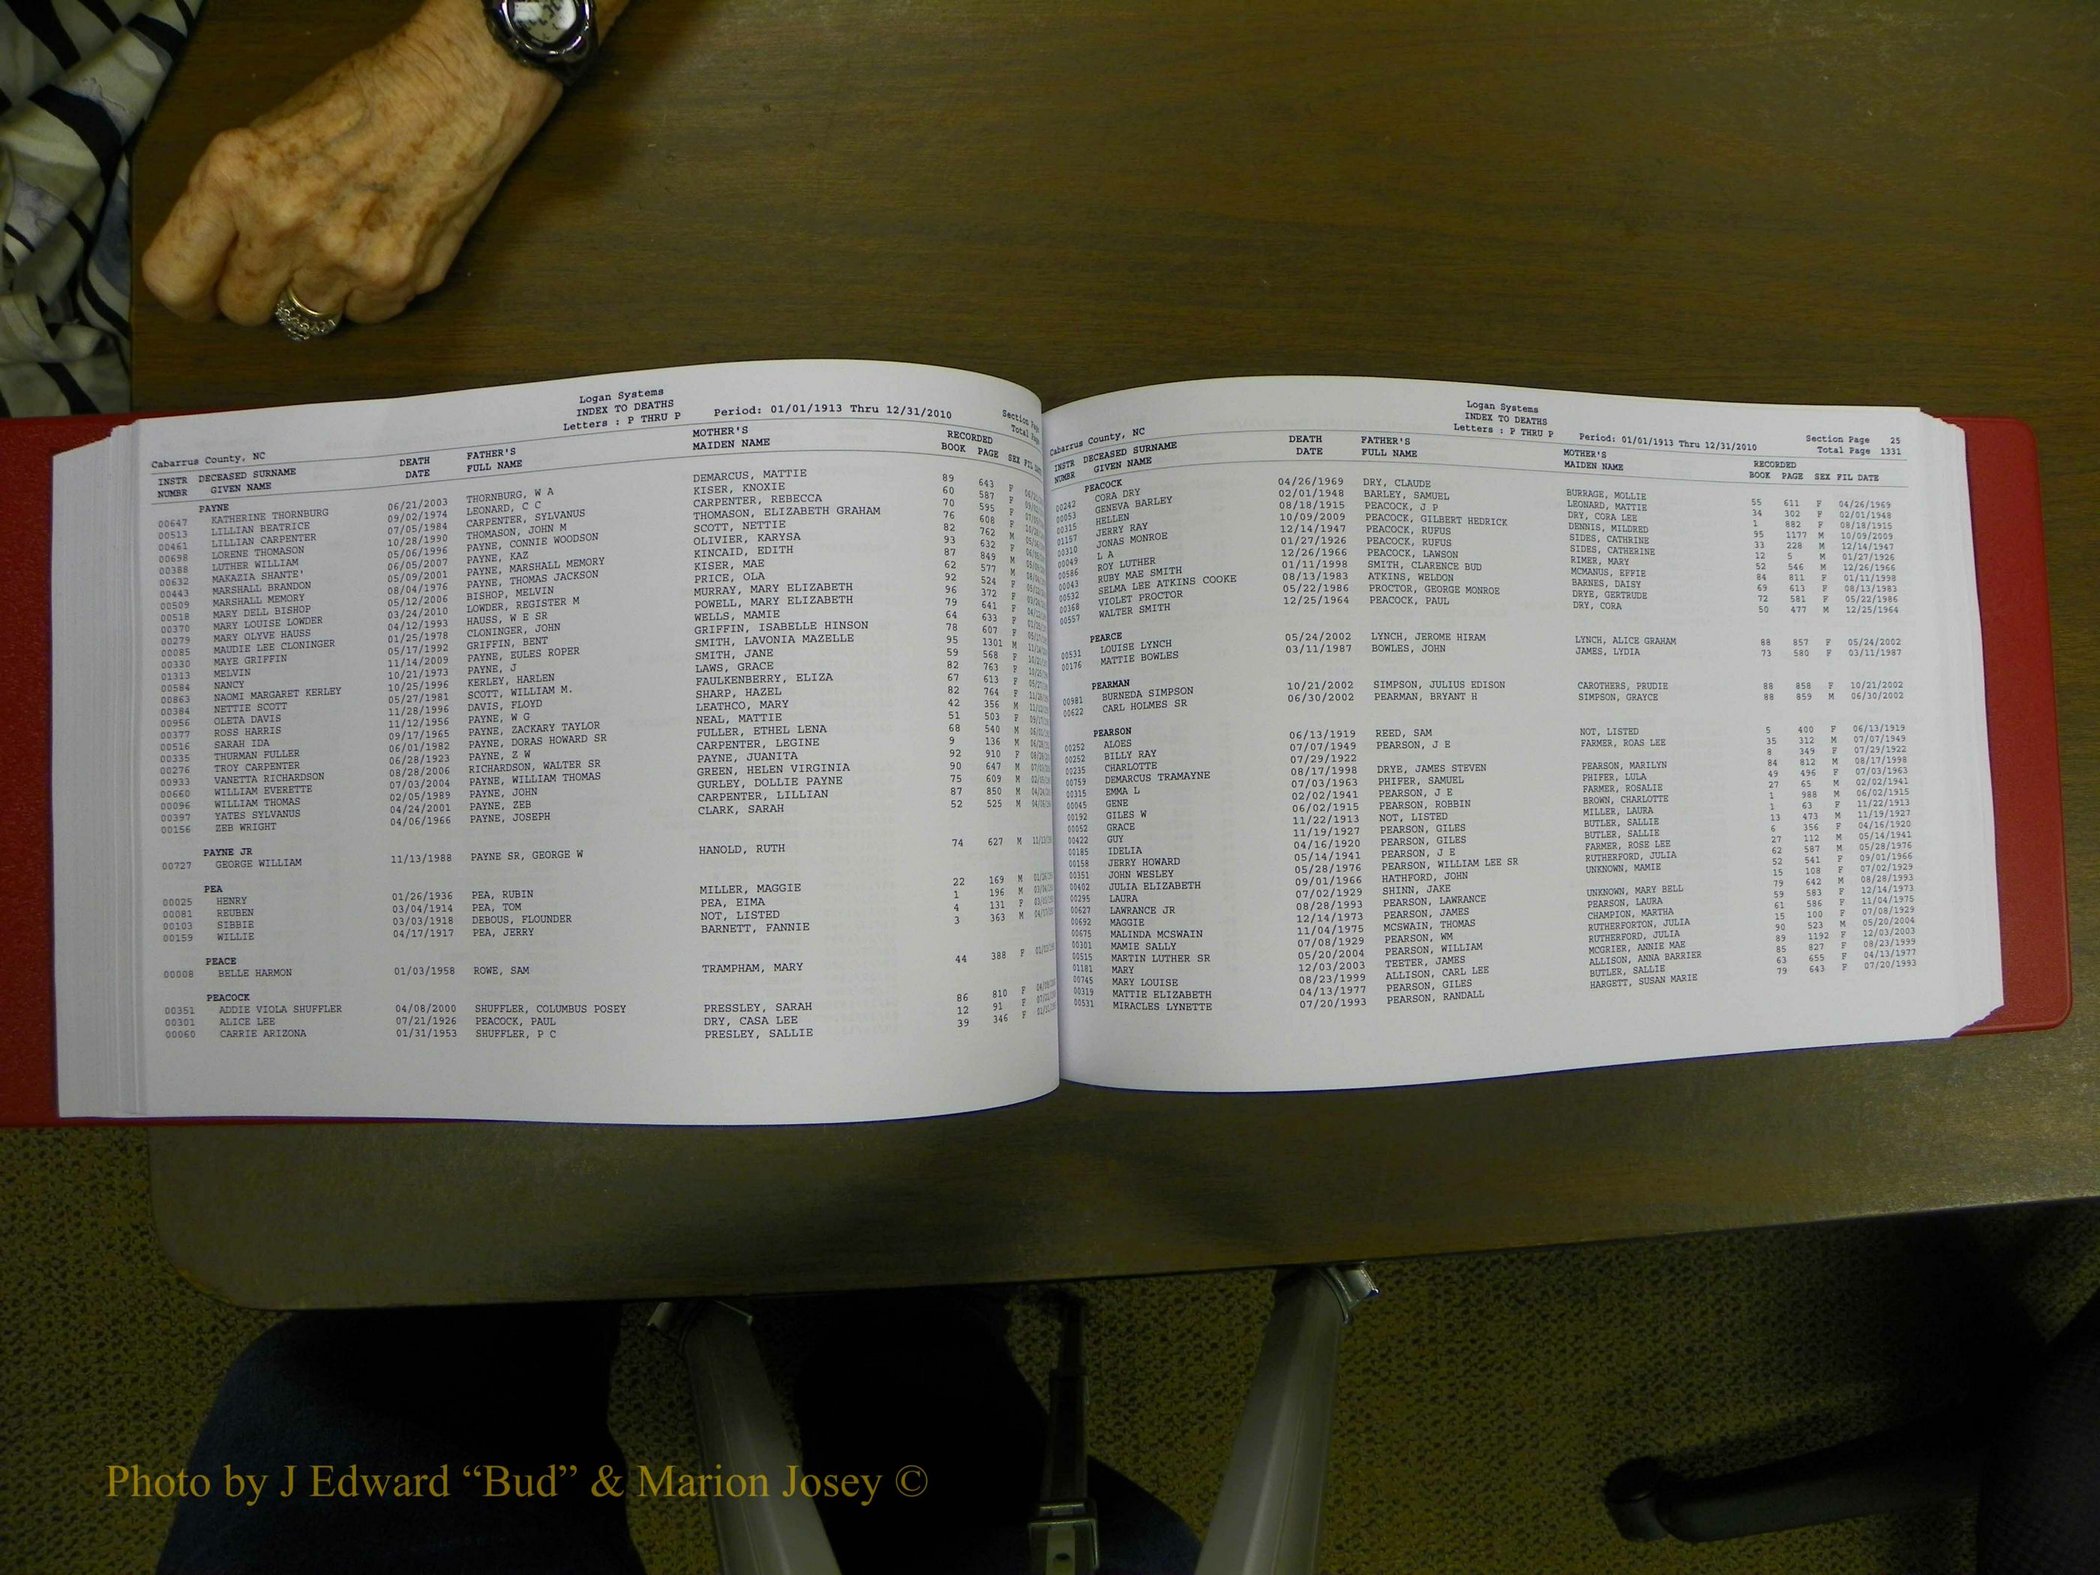 Logan Systems
INDEX TO DEATHS
Letters : P THRU P Period: 01/01/1913 Thru 12/31/2010 Section Page
Total Page
Cabarrus County, NC
INSTR DECEASED SURNAME DEATH FATHER'S MOTHER'S RECORDED
NUMBR GIVEN NAME DATE FULL NAME MAIDEN NAME BOOK PAGE SEX FIL
PAYNE
00647 KATHERINE THORNBURG 06/21/2003 THORNBURG, W A DEMARCUS, MATTIE 89 643 F
00513 LILLIAN BEATRICE 09/02/1974 LEONARD, C C KISER, KNOXIE 60 587 F
00461 LILLIAN CARPENTER 07/05/1984 CARPENTER, SYLVANUS CARPENTER, REBECCA 70 595 F
00698 LORENE THOMASON 10/28/1990 THOMASON, JOHN M THOMASON, ELIZABETH GRAHAM 76 608 F
00388 LUTHER WILLIAM 05/06/1996 PAYNE, CONNIE WOODSON SCOTT, NETTIE 82 762 M
00632 MAKAZIA SHANTE' 06/05/2007 PAYNE, KAZ OLIVIER, KARYSA 93 632 F
00443 MARSHALL BRANDON 05/09/2001 PAYNE, MARSHALL MEMORY KINCAID, EDITH 87 849 M
00509 MARSHALL MEMORY 08/04/1976 PAYNE, THOMAS JACKSON KISER, MAE 62 577 M
00518 MARY DELL BISHOP 05/12/2006 BISHOP, MELVIN PRICE, OLA 92 524 F
00370 MARY LOUISE LOWDER 03/24/2010 LOWDER, REGISTER M MURRAY, MARY ELIZABETH 96 372 F
00279 MARY OLYVE HAUSS 04/12/1993 HAUSS, W E SR POWELL, MARY ELIZABETH 79 641 F
00085 MAUDIE LEE CLONINGER 01/25/1978 CLONINGER, JOHN WELLS, MAMIE 64 633 F
00330 MAYE GRIFFIN 05/17/1992 GRIFFIN, BENT GRIFFIN, ISABELLE HINSON 78 607 F
01313 MELVIN 11/14/2009 PAYNE, EULES ROPER SMITH, LAVONIA MAZELLE 95 1301 M
00584 NANCY 10/21/1973 PAYNE, J SMITH, JANE 59 568 F
00863 NAOMI MARGARET KERLEY 10/25/1996 KERLEY, HARLEN LAWS, GRACE 82 763 F
00384 NETTIE SCOTT 05/27/1981 SCOTT, WILLIAM M. FAULKENBERRY, ELIZA 67 613 F
00956 OLETA DAVIS 11/28/1996 DAVIS, FLOYD SHARP, HAZEL 82 764 F
00377 ROSS HARRIS 11/12/1956 PAYNE, W G LEATHCO, MARY 42 356 M
00516 SARAH IDA 09/17/1965 PAYNE, ZACKARY TAYLOR NEAL, MATTIE 51 503 F
00335 THURMAN FULLER 06/01/1982 PAYNE, DORAS HOWARD SR FULLER, ETHEL LENA 68 540 M
00276 TROY CARPENTER 06/28/1923 PAYNE, Z W CARPENTER, LEGINE 9 136 M
00933 VANETTA RICHARDSON 08/28/2006 RICHARDSON, WALTER SR PAYNE, JUANITA 92 910 F
00660 WILLIAM EVERETTE 07/03/2004 PAYNE, WILLIAM THOMAS GREEN, HELEN VIRGINIA 90 647 M
00096 WILLIAM THOMAS 02/05/1989 PAYNE, JOHN GURLEY, DOLLIE PAYNE 75 609 M
00397 YATES SYLVANUS 04/24/2001 PAYNE, ZEB CARPENTER, LILLIAN 87 850 M
00156 ZEB WRIGHT 04/06/1966 PAYNE, JOSEPH CLARK, SARAH 52 525 M
PAYNE JR
00727 GEORGE WILLIAM 11/13/1988 PAYNE SR, GEORGE W HANOLD, RUTH 74 627 M
PEA
00025 HENRY 01/26/1936 PEA, RUBIN MILLER, MAGGIE 22 169 M
00081 REUBEN 03/04/1914 PEA, TOM PEA, EIMA 1 196 M
00103 SIBBIE 03/03/1918 DEBOUS, FLOUNDER NOT, LISTED 4 131 F
00159 WILLIE 04/17/1917 PEA, JERRY BARNETT, FANNIE 3 363 M
PEACE
00008 BELLE HARMON 01/03/1958 ROWE, SAM TRAMPHAM, MARY 44 388 F
PEACOCK
00351 ADDIE VIOLA SHUFFLER 04/08/2000 SHUFFLER, COLUMBUS POSEY PRESSLEY, SARAH 86 810 F
00301 ALICE LEE 07/21/1926 PEACOCK, PAUL DRY, CASA LEE 12 91 F
00060 CARRIE ARIZONA 01/31/1953 SHUFFLER, P C PRESLEY, SALLIE 39 346 F
Logan Systems
INDEX TO DEATHS
Letters : P THRU P Period: 01/01/1913 Thru 12/31/2010 Section Page 25
Total Page 1331
Cabarrus County, NC
INSTR DECEASED SURNAME DEATH FATHER'S MOTHER'S RECORDED
NUMBR GIVEN NAME DATE FULL NAME MAIDEN NAME BOOK PAGE SEX FIL DATE
PEACOCK
00242 CORA DRY 04/26/1969 DRY, CLAUDE BURRAGE, MOLLIE 55 611 F 04/26/1969
00053 GENEVA BARLEY 02/01/1948 BARLEY, SAMUEL LEONARD, MATTIE 34 302 F 02/01/1948
00315 HELLEN 08/18/1915 PEACOCK, J P DRY, CORA LEE 1 882 F 08/18/1915
01157 JERRY RAY 10/09/2009 PEACOCK, GILBERT HEDRICK DENNIS, MILDRED 95 1177 M 10/09/2009
00310 JONAS MONROE 12/14/1947 PEACOCK, RUFUS SIDES, CATHRINE 33 228 M 12/14/1947
00049 L A 01/27/1926 PEACOCK, RUFUS SIDES, CATHERINE 12 5 M 01/27/1926
00586 ROY LUTHER 12/26/1966 PEACOCK, LAWSON RIMER, MARY 52 546 M 12/26/1966
00043 RUBY MAE SMITH 01/11/1998 SMITH, CLARENCE BUD MCMANUS, EFFIE 84 811 F 01/11/1998
00532 SELMA LEE ATKINS COOKE 08/13/1983 ATKINS, WELDON BARNES, DAISY 69 613 F 08/13/1983
00368 VIOLET PROCTOR 05/22/1986 PROCTOR, GEORGE MONROE DRYE, GERTRUDE 72 581 F 05/22/1986
00557 WALTER SMITH 12/25/1964 PEACOCK, PAUL DRY, CORA 50 477 M 12/25/1964
PEARCE
00531 LOUISE LYNCH 05/24/2002 LYNCH, JEROME HIRAM LYNCH, ALICE GRAHAM 88 857 F 05/24/2002
00176 MATTIE BOWLES 03/11/1987 BOWLES, JOHN JAMES, LYDIA 73 580 F 03/11/1987
PEARMAN
00981 BURNEDA SIMPSON 10/21/2002 SIMPSON, JULIUS EDISON CAROTHERS, PRUDIE 88 858 F 10/21/2002
00622 CARL HOLMES SR 06/30/2002 PEARMAN, BRYANT H SIMPSON, GRAYCE 88 859 M 06/30/2002
PEARSON
00252 ALOES 06/13/1919 REED, SAM NOT, LISTED 5 400 F 06/13/1919
00252 BILLY RAY 07/07/1949 PEARSON, J E FARMER, ROAS LEE 35 312 M 07/07/1949
00235 CHARLOTTE 07/29/1922 8 349 F 07/29/1922
00759 DEMARCUS TRAMAYNE 08/17/1998 DRYE, JAMES STEVEN PEARSON, MARILYN 84 812 M 08/17/1998
00315 EMMA L 07/03/1963 PHIFER, SAMUEL PHIFER, LULA 49 496 F 07/03/1963
00045 GENE 02/02/1941 PEARSON, J E FARMER, ROSALIE 27 65 M 02/02/1941
00192 GILES W 06/02/1915 PEARSON, ROBBIN BROWN, CHARLOTTE 1 988 M 06/02/1915
00052 GRACE 11/22/1913 NOT, LISTED MILLER, LAURA 1 63 F 11/22/1913
00422 GUY 11/19/1927 PEARSON, GILES BUTLER, SALLIE 13 473 M 11/19/1927
00185 IDELIA 04/16/1920 PEARSON, GILES BUTLER, SALLIE 6 356 F 04/16/1920
00158 JERRY HOWARD 05/14/1941 PEARSON, J E FARMER, ROSE LEE 27 112 M 05/14/1941
00351 JOHN WESLEY 05/28/1976 PEARSON, WILLIAM LEE SR RUTHERFORD, JULIA 62 587 M 05/28/1976
00402 JULIA ELIZABETH 09/01/1966 HATHFORD, JOHN UNKNOWN, MAMIE 52 541 F 09/01/1966
00295 LAURA 07/02/1929 SHINN, JAKE 15 108 F 07/02/1929
00627 LAWRANCE JR 08/28/1993 PEARSON, LAWRANCE UNKNOWN, MARY BELL 79 642 M 08/28/1993
00692 MAGGIE 12/14/1973 PEARSON, JAMES PEARSON, LAURA 59 583 F 12/14/1973
00675 MALINDA MCSWAIN 11/04/1975 MCSWAIN, THOMAS CHAMPION, MARTHA 61 586 F 11/04/1975
00301 MAMIE SALLY 07/08/1929 PEARSON, WM RUTHERFORTON, JULIA 15 100 F 07/08/1929
00515 MARTIN LUTHER SR 05/20/2004 PEARSON, WILLIAM RUTHERFORD, JULIA 90 523 M 05/20/2004
01181 MARY 12/03/2003 TEETER, JAMES MCGRIER, ANNIE MAE 89 1192 F 12/03/2003
00745 MARY LOUISE 08/23/1999 ALLISON, CARL LEE ALLISON, ANNA BARRIER 85 827 F 08/23/1999
00319 MATTIE ELIZABETH 04/13/1977 PEARSON, GILES BUTLER, SALLIE 63 655 F 04/13/1977
00531 MIRACLES LYNETTE 07/20/1993 PEARSON, RANDALL HARGETT, SUSAN MARIE 79 643 F 07/20/1993
Photo by J Edward “Bud” & Marion Josey ©